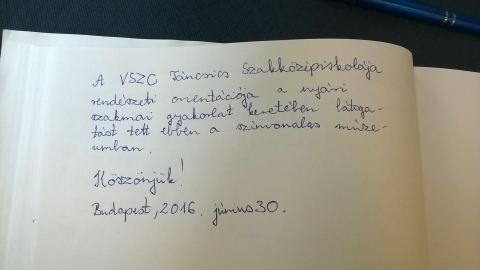 A VSZC Táncsics Szakközépiskolája
rendészeti orientációja a nyári
szakmai gyakorlat keretében látoga-
tást tett ebben a színvonalas múze-
umban.
Köszönjük!
Budapest, 2016. június 30.